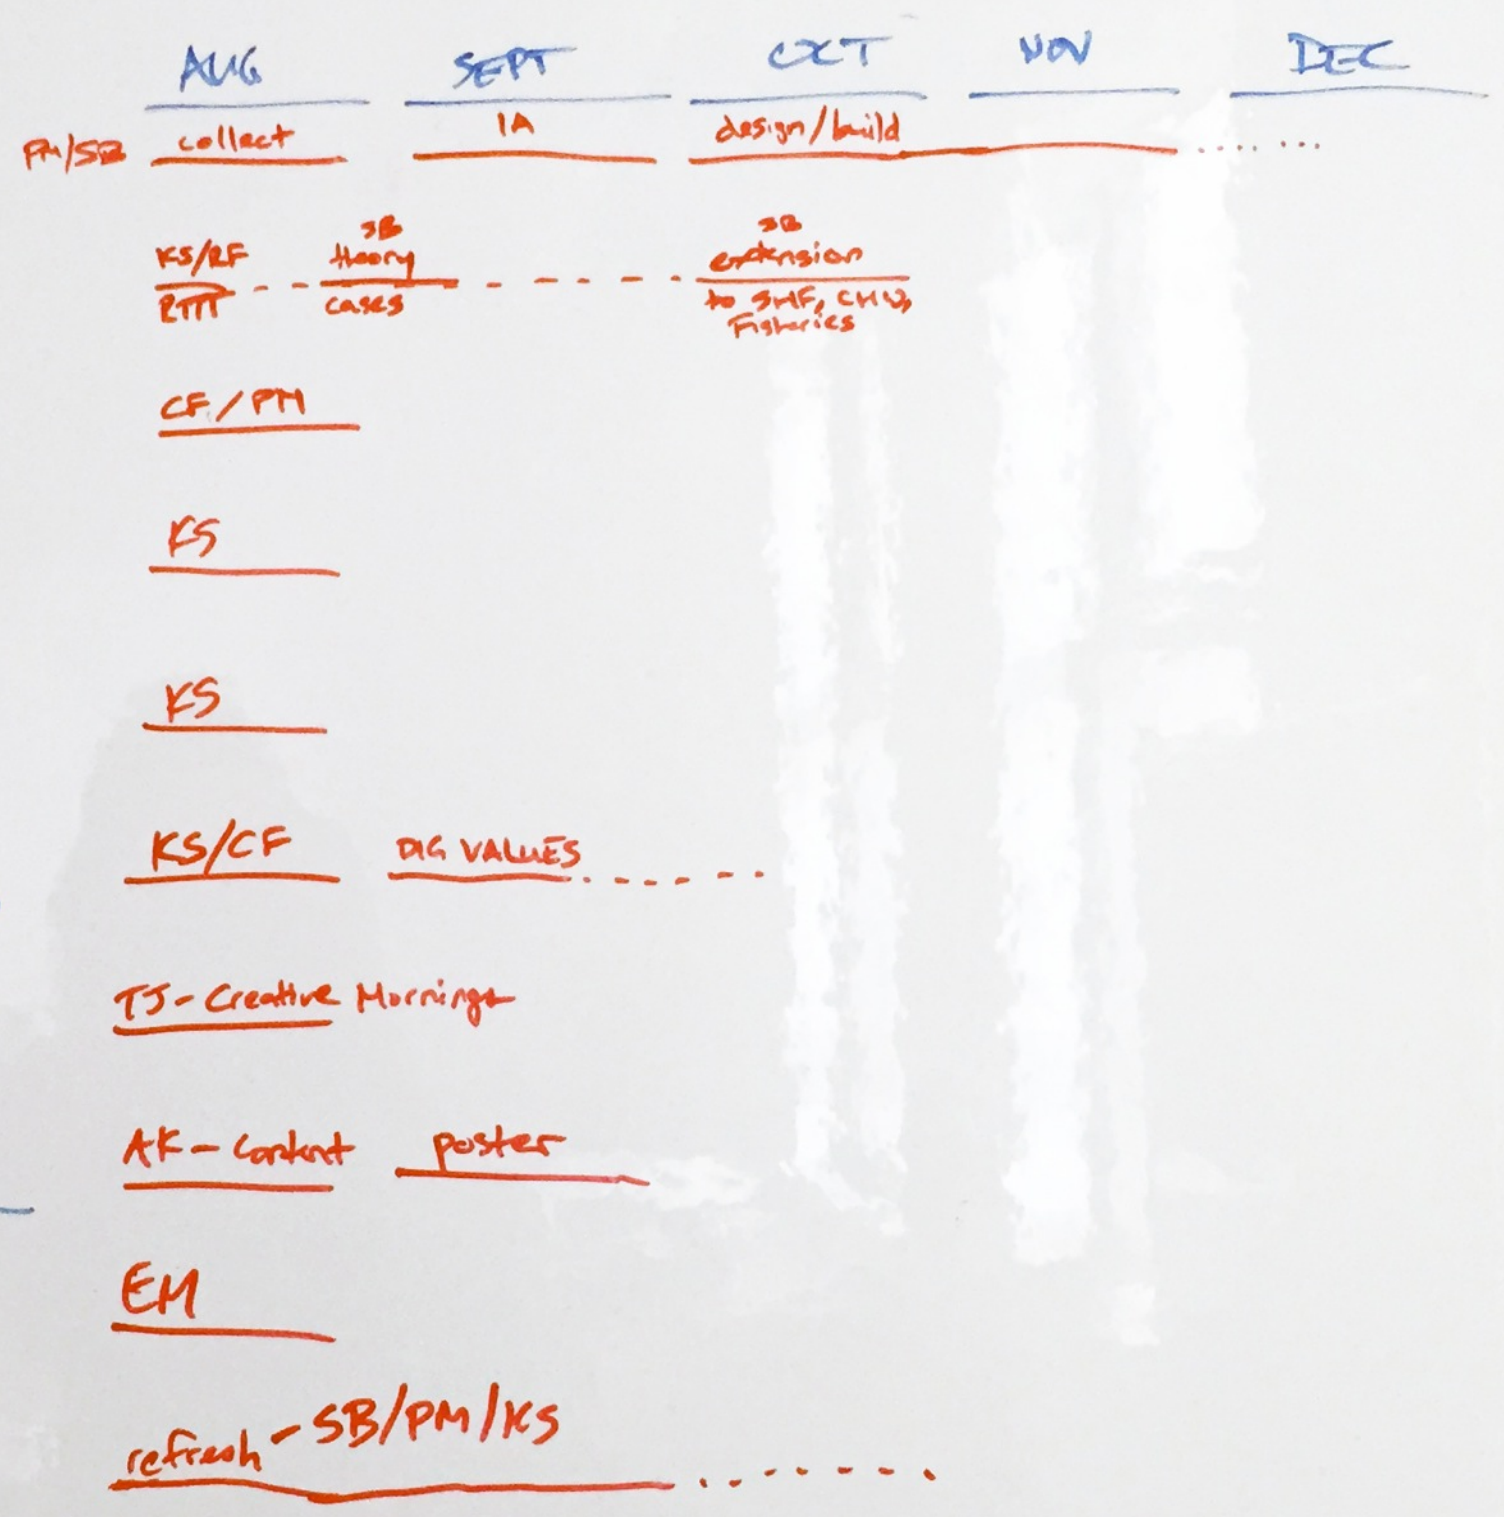 AUG SEPT OCT NOV DEC
PM/SB collect IA design/build
SB SB
KS/RF theory extension
RTTT cases to SHF, CHW,
Fisheries
CF/PM
KS
KS
KS/CF DIG VALUES
TJ - Creative Mornings
AK - Content poster
EM
refresh - SB/PM/KS